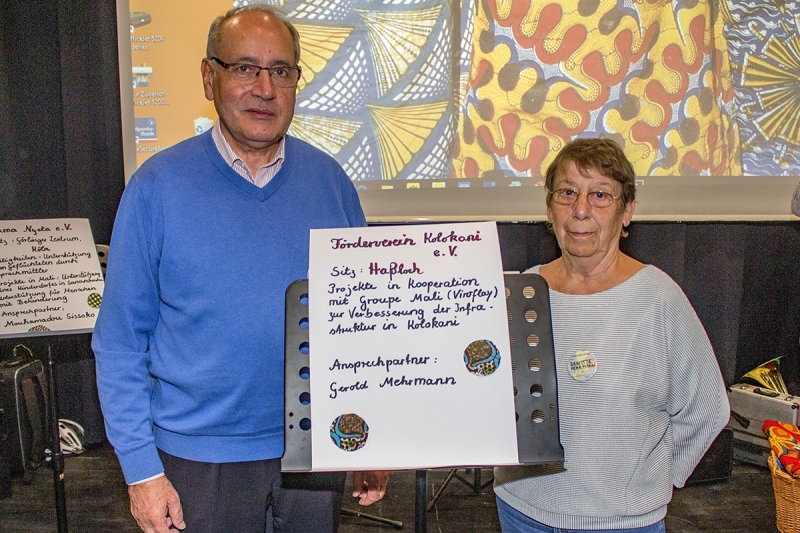 Förderverein Kolokani
e.V.
Sitz: Haßloch
Projekte in Kooperation
mit Groupe Mali (Viroflay)
zur Verbesserung der Infra-
struktur in Kolokani
Ansprechpartner:
Gerold Mehrmann
ama Nyeta e.V.
itz: Görlinger Zentrum,
Köln
ätigkeiten: Unterstützung
on geflüchteten durch
Sprachmittler
rojekte in Mali: Unterstützung
ines Kinderdorfes in
nterstützung für Menschen
mit Behinderung
Ansprechpartner:
Mouhamadou Sissoko
fficeJet 5200
eries
Zubehör-
fficeJet 5200
Sparda-
Bank